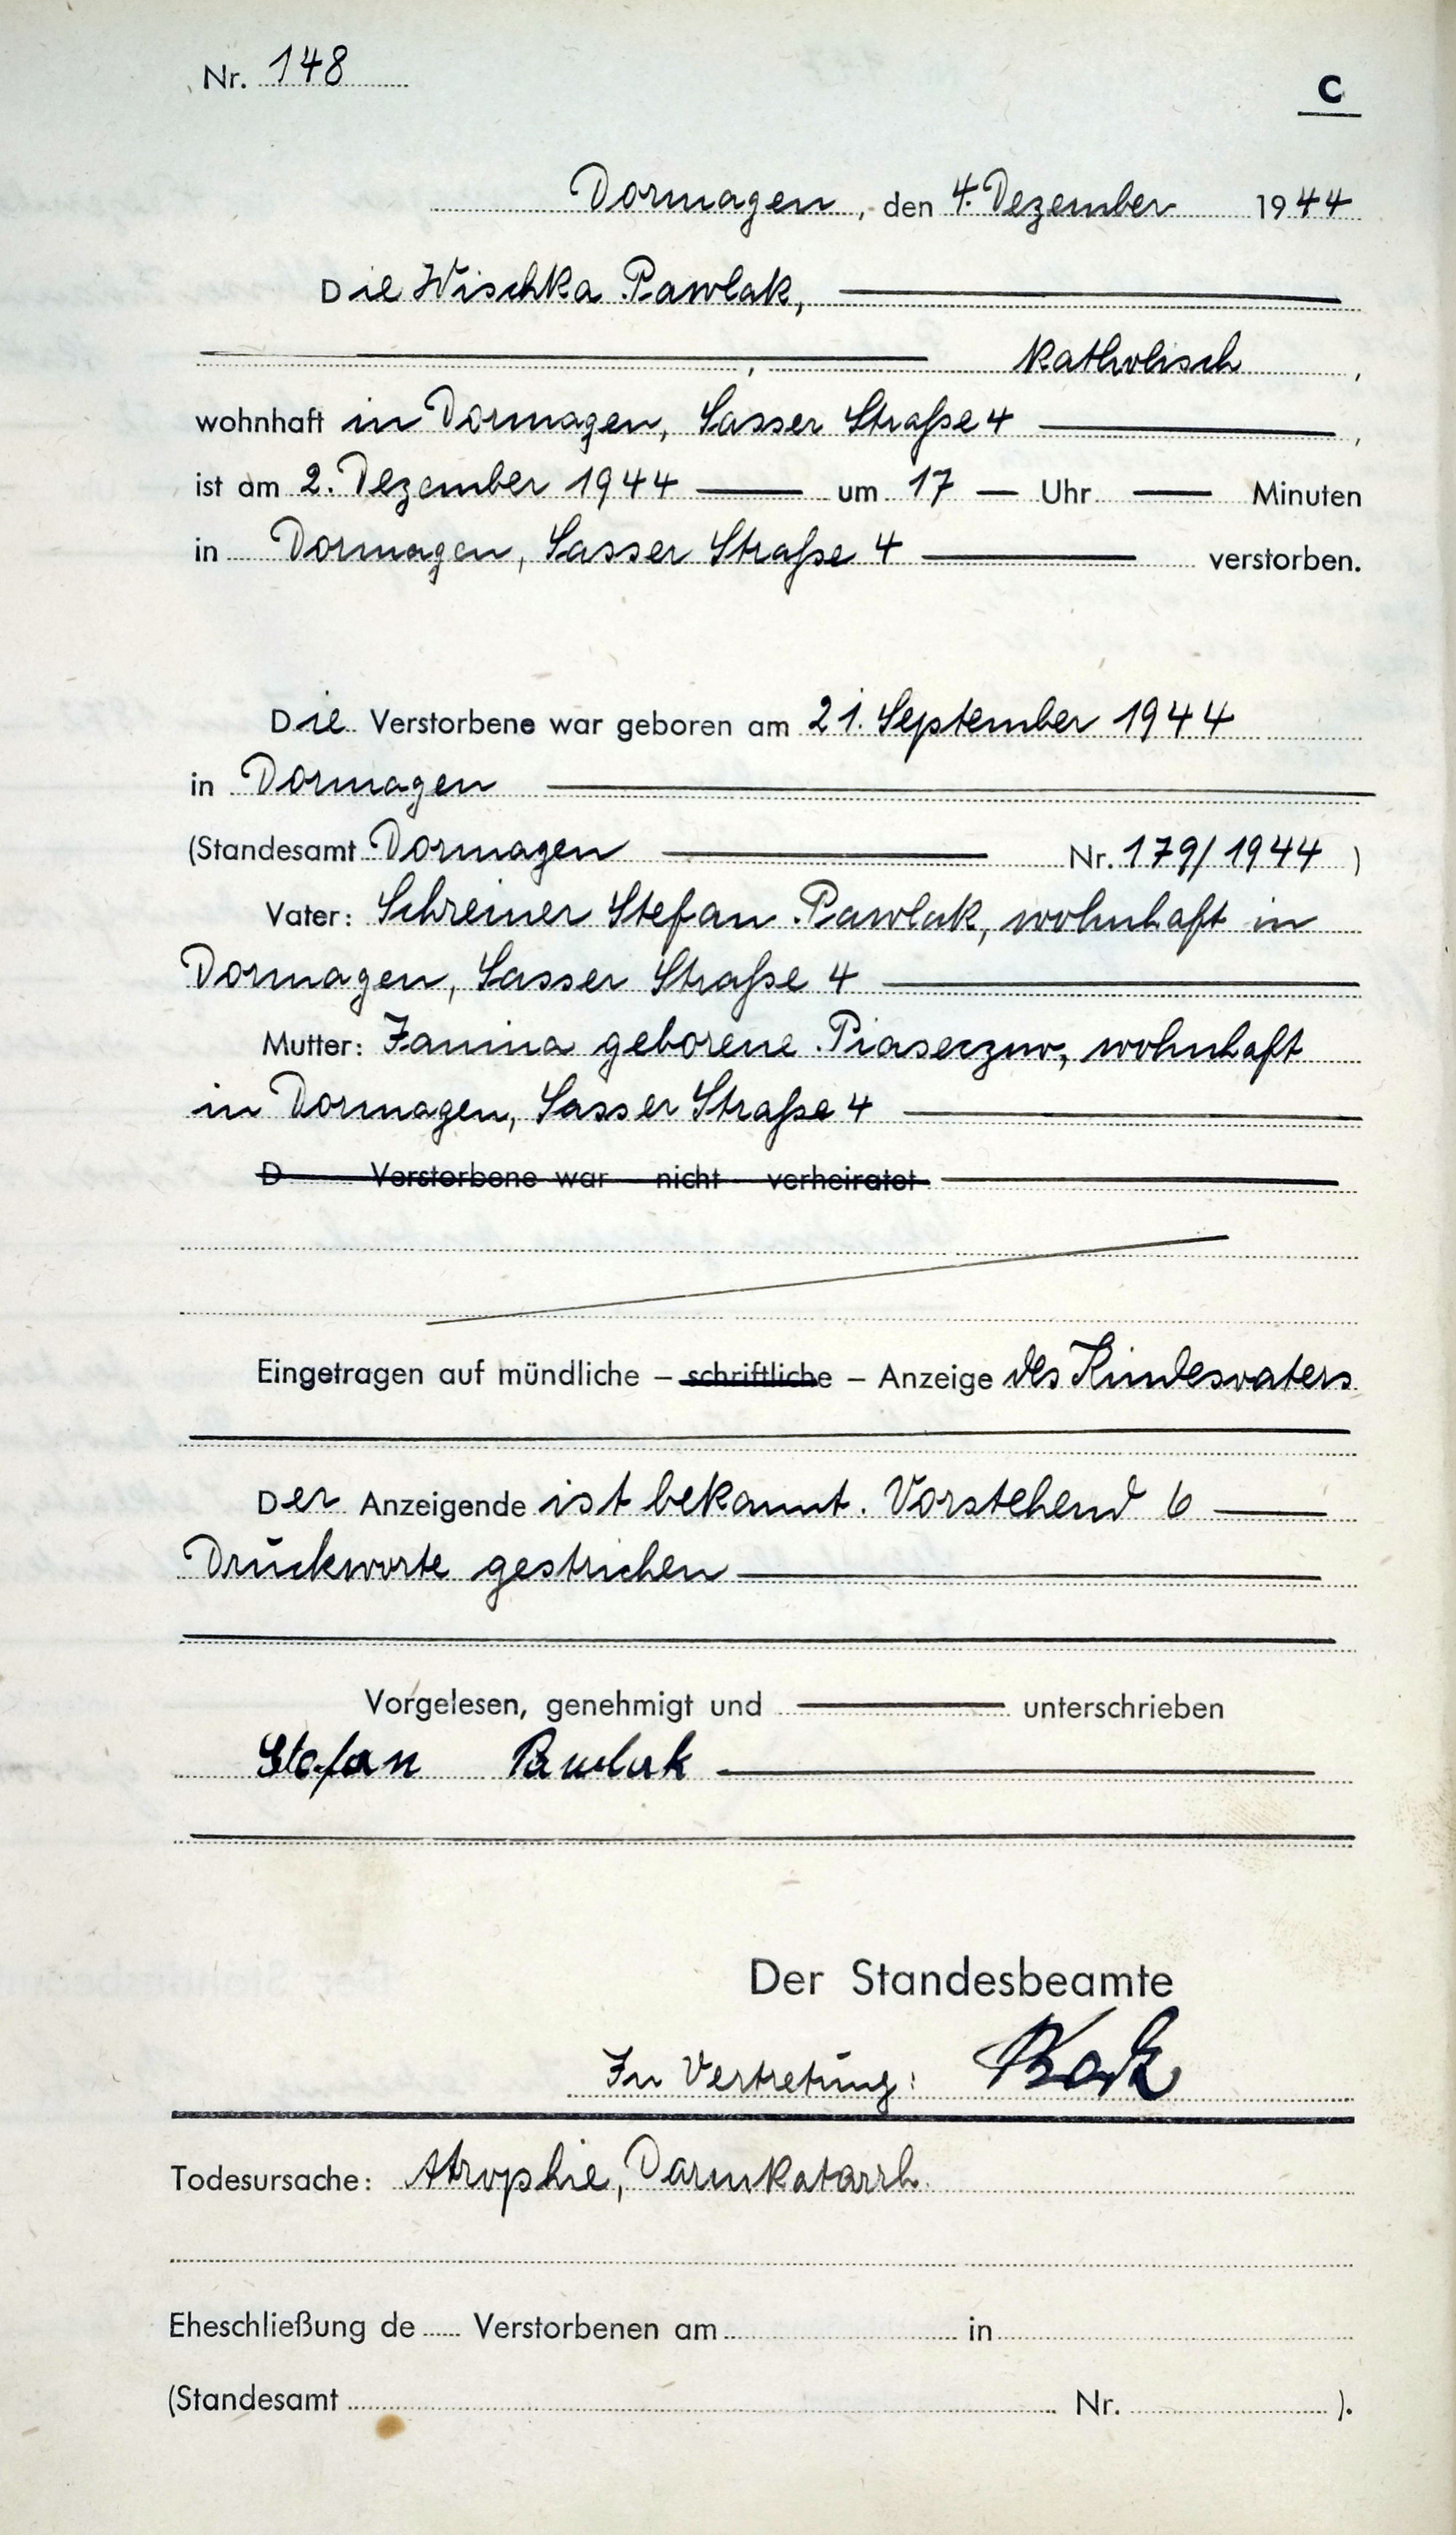 Nr. 148
C
Dormagen, den 4. Dezember 1944
Die Wischka Pawlak,
, katholisch,
wohnhaft in Dormagen, Sasser Straße 4,
ist am 2. Dezember 1944 um 17 Uhr Minuten
in Dormagen, Sasser Straße 4 verstorben.
Die Verstorbene war geboren am 21. September 1944
in Dormagen
(Standesamt Dormagen Nr. 179/1944)
Vater: Schreiner Stefan Pawlak, wohnhaft in
Dormagen, Sasser Straße 4
Mutter: Janina geborene Piaseczno, wohnhaft
in Dormagen, Sasser Straße 4
D Verstorbene war nicht verheiratet
Eingetragen auf mündliche – schriftliche – Anzeige des Kindesvaters
Der Anzeigende ist bekannt. Vorstehend 6
Druckworte gestrichen
Vorgelesen, genehmigt und unterschrieben
Stefan Pawlak
Der Standesbeamte
In Vertretung:
Todesursache: Atrophie, Darmkatarrh.
Eheschließung de Verstorbenen am in
(Standesamt Nr. ).